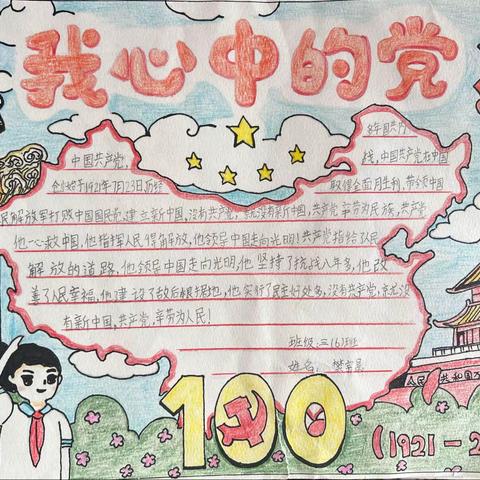 我心中的党
中国共产党,
创始于1921年7月23日,历经
8年国共内
线,中国共产党在中国
取得全面月生利,带领中国
民解放军打败中国国民党,建立新中国,没有共产党,就没有新中国,共产党辛劳为民族,共产党
他一心救中国,他指挥人民得角解放,他领导中国走向光明!共产党指给人民
解放的道路,他领导中国走向光明,他坚持了抗战八年多,他改
善了人民幸福,他建设了敌后根据地,他实行了民主好处多,没有共产党,就没
有新中国,共产党,辛劳为人民!
班级:三(6)班
姓名:樊
100
人民共和国万
(1921-2